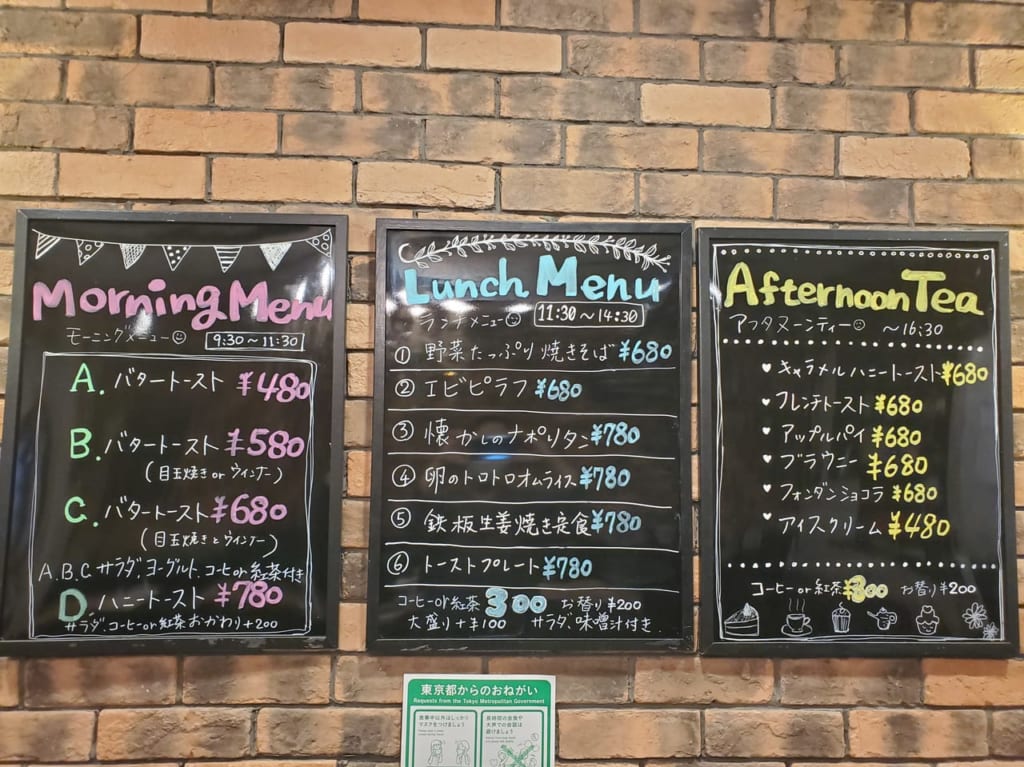 Morning Menu
モーニングメニュー 9:30～11:30
A. バタートースト ¥480
B. バタートースト ¥580
(目玉焼き or ウインナー)
C. バタートースト ¥680
(目玉焼きとウインナー)
A.B.C サラダ、ヨーグルト、コーヒor紅茶付き
D ハニートースト ¥780
サラダ、コーヒーor紅茶おかわり+200
Lunch Menu
ランチメニュー 11:30～14:30
① 野菜たっぷり焼きそば ¥680
② エビピラフ ¥680
③ 懐かしのナポリタン ¥780
④ 卵のトロトロオムライス ¥780
⑤ 鉄板生姜焼き定食 ¥780
⑥ トーストプレート ¥780
コーヒーor紅茶 300 お替り¥200
大盛り+¥100 サラダ、味噌汁付き
Afternoon Tea
アフタヌーンティー ～16:30
キャラメルハニートースト ¥680
フレンチトースト ¥680
アップルパイ ¥680
ブラウニー ¥680
フォンダンショコラ ¥680
アイスクリーム ¥480
コーヒーor紅茶 ¥300 お替り¥200
東京都からのおねがい
Requests from the Tokyo Metropolitan Government
食事中以外はしっかり
マスクをつけましょう
長時間の会食や
大声での会話は
避けましょう